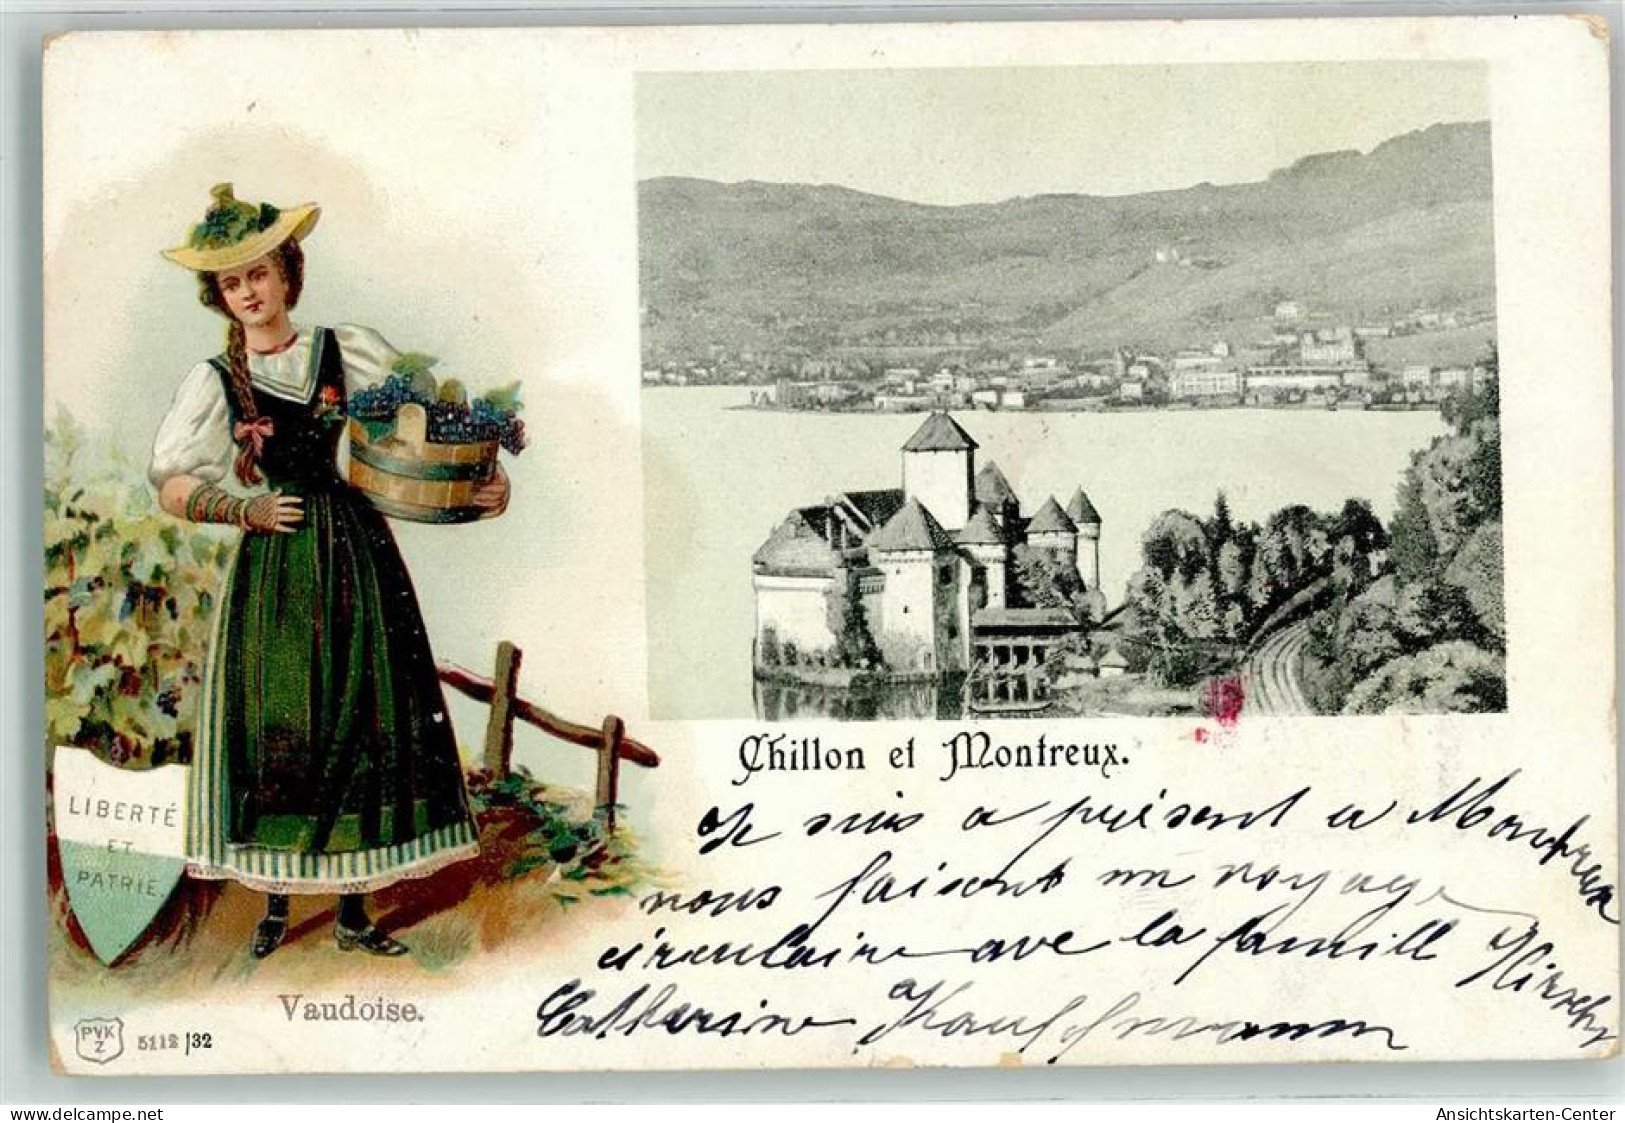 LIBERTÉ
ET
PATRIE
Vaudoise.
PVK
Z
5112/32
Chillon et Montreux.
Je suis a présent a Montreux
nous faisent un voyage
circulaire ave la famill Hirschy
Catherine Kauffmann
delcampe.net
Ansichtskarten-Center